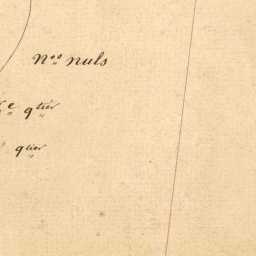 Nos nuls
e qtier
qtier